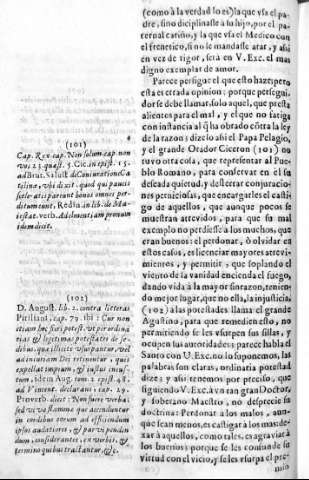 (como à la verdad lo es) la que vsa el pa-
dre, sino diciplinasse a su hijo, por el pa-
ternal cariño, y la que vsa el Medico con
el frenetico, si no le mandasse atar, y assi
en vez de rigor, será en V. Exc. el mas
digno exemplar de amor.
Parece persigue el que esto haze; pero
esta es errada opinion: porque persegui-
dor se debe llamar, solo aquel, que presta
alientos para el mal, y el que no fatiga
con instancia al q̃ ha obrado contra la ley
de la razon: dize lo assi el Papa Pelagio,
y el grande Orador Ciceron (101) no
tuvo otra cola, que representar al Pue-
blo Romano, para conservar en èl su
deseada quietud, y desterrar conjuracio-
nes perniciosas, que encargarles el casti-
go de aquellos, que aunque pocos se
muestran atrevidos, para que su mal
exemplo no perdiesse à los muchos, que
eran buenos: el perdonar, ò olvidar en
estos casos, es licenciar mayores atrevi-
mientos, y permitir, que soplando el
viento de la vanidad encienda el fuego,
dando vida à la mayor sinrazon, tenien-
do mejor lugar, que no ella, la injusticia,
(102) à las potestades llama el grande
Agustino, para que remedien esto, no
permitiendo se les vsurpen sus sillas, y
ocupen sus autoridades: parece habla el
Santo con V. Exc. no lo suponemos, las
palabras son claras, ordinatissima po-
dia dezir; y assi tenemos por preciso, que
siguiendo V. Exc. à vn tan gran Doctor,
y soberano Maestro, no desprecie su
doctrina: Perdonar à los malos, aun-
que sean menos, es castigar à los mas: de-
xar à aquellos, como tales, es agraviar à
los buenos: porque se les confina de su
virtud con el vicio, y se les vsurpa el pre-
mio
(101)
Cap. Rex cap. Non solum cap. non
vos. 23. quæst. 5. Cic. in epist. 15.
ad Brut. Salust. de Coniuratione Ca-
telina, vbi dixit: quid qui paucis
sceleratis parcunt bonos omnes per-
ditum eunt. Redin. in lib. de Ma-
iestat. verb. Ad deuotam premium
idem dicit.
(102)
D. August. lib. 2. contra litteras
Pitiliani, cap. 79. ibi: Cur non
etiam hoc fieri potest, vt per ordina-
rias & legitimas potestates de se-
debus, quæ illicitè vsurpantur, vel
ad iniuriam Dei retinentur, qui
expellat impium, & iustus inuti-
tuatur, idem Aug. tom. 2. epist. 48.
ad Vincent. declarani, cap. 29.
Proverb. dicet: Non suere verba;
sed vivas flammæ quæ accenduntur
in cordibus eorum ad efficiendum
ipsos auditores, & parvi penden-
dum, considerantes, ex verbis, &
terminis quibus tractantur, &c.